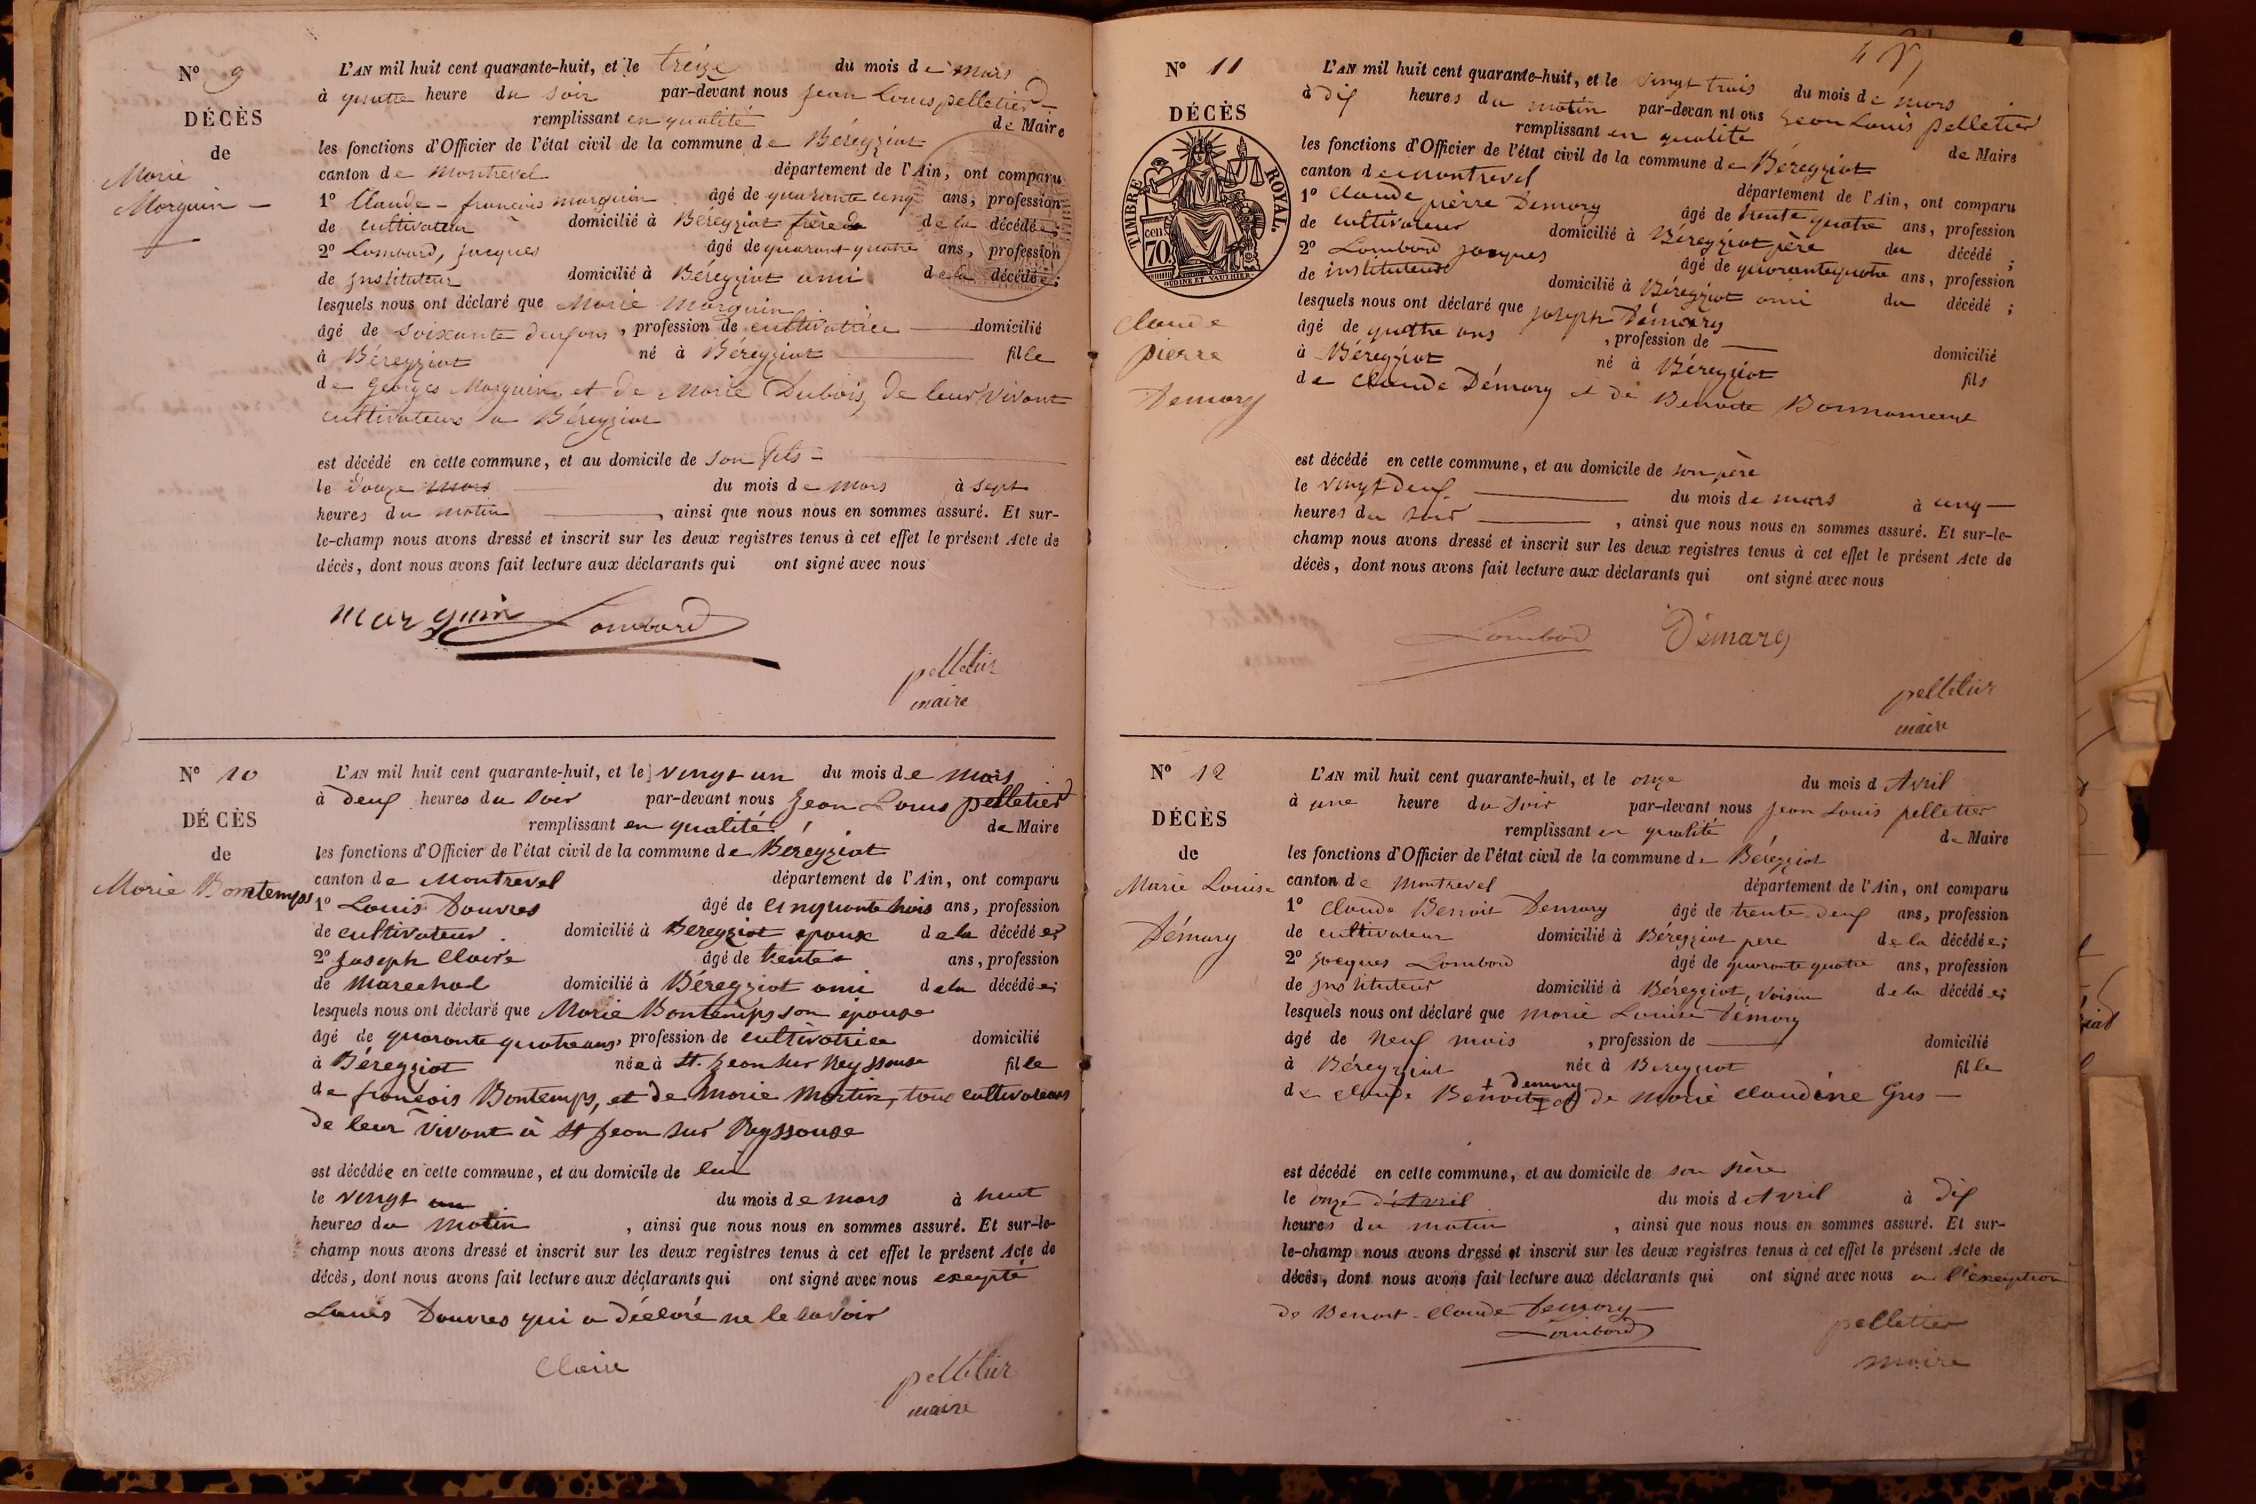 N° 9
DÉCÈS
de
Marie
Morguin
L'AN mil huit cent quarante-huit, et le treize du mois de mars
à quatre heure du soir par-devant nous Jean Louis pelletier
remplissant en qualité de Maire
les fonctions d'Officier de l'état civil de la commune de Béreyziat
canton de Montrevel département de l'Ain, ont comparu
1° Claude - francois morguin âgé de quarante cinq ans, profession
de cultivateur domicilié à Béreyziat frère de la décédée;
2° Lombard, jacques âgé de quarante quatre ans, profession
de Instituteur domicilié à Béreyziat ami de la décédée;
lesquels nous ont déclaré que Marie Morguin
âgé de soixante deux ans, profession de cultivatrice domicilié
à Béreyziat né à Béreyziat fille
de Georges Morguin et de Marie Dubois, de leur vivant
cultivateurs à Béreyziat
est décédé en cette commune, et au domicile de son fils
le douze mars du mois de mars à sept
heures du matin, ainsi que nous nous en sommes assuré. Et sur-
le-champ nous avons dressé et inscrit sur les deux registres tenus à cet effet le présent Acte de
décès, dont nous avons fait lecture aux déclarants qui ont signé avec nous
morguin Lombard
pelletier
maire
N° 10
DÉCÈS
de
Marie Bontemps
L'AN mil huit cent quarante-huit, et le vingt un du mois de Mars
à deux heures du soir par-devant nous Jean Louis pelletier
remplissant en qualité de Maire
les fonctions d'Officier de l'état civil de la commune de Béreyziat
canton de Montrevel département de l'Ain, ont comparu
1° Louis Douvres âgé de cinquante trois ans, profession
de cultivateur domicilié à Béreyziat epoux de la décédée;
2° Joseph Claire âgé de trente ans, profession
de Marechal domicilié à Béreyziat ami de la décédée;
lesquels nous ont déclaré que Marie Bontemps son épouse
âgé de quarante quatre ans, profession de cultivatrice domicilié
à Béreyziat née à St. Jean sur Reyssouse fille
de françois Bontemps, et de Marie Martin, tous cultivateurs
de leur vivant à St Jean sur Reyssouse
est décédée en cette commune, et au domicile de lui
le vingt un du mois de mars à huit
heures du matin, ainsi que nous nous en sommes assuré. Et sur-le-
champ nous avons dressé et inscrit sur les deux registres tenus à cet effet le présent Acte de
décès, dont nous avons fait lecture aux déclarants qui ont signé avec nous excepté
Louis Douvres qui a déclaré ne le savoir
Claire
pelletier
maire
N° 11
DÉCÈS
TIMBRE ROYAL.
70 cen
OUDINÉ ET VAUTHIER
claude
pierre
Demary
L'AN mil huit cent quarante-huit, et le vingt trois du mois de mars
à dix heures du matin par-devan nt ous Jean Louis pelletier
remplissant en qualité de Maire
les fonctions d'Officier de l'état civil de la commune de Béreyziat
canton de Montrevel département de l'Ain, ont comparu
1° Claude pierre Demary âgé de trente quatre ans, profession
de cultivateur domicilié à Béreyziat père du décédé;
2° Lombard jacques âgé de quarante quatre ans, profession
de instituteur domicilié à Béreyziat ami du décédé;
lesquels nous ont déclaré que joseph Démary
âgé de quatre ans, profession de domicilié
à Béreyziat né à Béreyziat fils
de Claude Démary et de Benoite
est décédé en cette commune, et au domicile de son père
le vingt deux du mois de mars à cinq
heures du soir, ainsi que nous nous en sommes assuré. Et sur-le-
champ nous avons dressé et inscrit sur les deux registres tenus à cet effet le présent Acte de
décès, dont nous avons fait lecture aux déclarants qui ont signé avec nous
Lombard Démary
pelletier
maire
N° 12
DÉCÈS
de
Marie Louise
Démary
L'AN mil huit cent quarante-huit, et le onze du mois d Avril
à une heure du soir par-devant nous Jean Louis pelletier
remplissant en qualité de Maire
les fonctions d'Officier de l'état civil de la commune de Béreyziat
canton de Montrevel département de l'Ain, ont comparu
1° Claude Benoit Demary âgé de trente deux ans, profession
de cultivateur domicilié à Béreyziat pere de la décédée;
2° Jacques Lombard âgé de quarante quatre ans, profession
de Instituteur domicilié à Béreyziat, voisin de la décédée;
lesquels nous ont déclaré que marie Louise Démary
âgé de neuf mois, profession de domicilié
à Béreyziat née à Béreyziat fille
de claude Benoit demary et de Marie claudine Gris
est décédé en cette commune, et au domicile de son père
le onze d'Avril du mois d Avril à dix
heures du matin, ainsi que nous nous en sommes assuré. Et sur-
le-champ nous avons dressé et inscrit sur les deux registres tenus à cet effet le présent Acte de
décès, dont nous avons fait lecture aux déclarants qui ont signé avec nous a l'exception
de Benoit - Claude Demary
Lombard
pelletier
maire